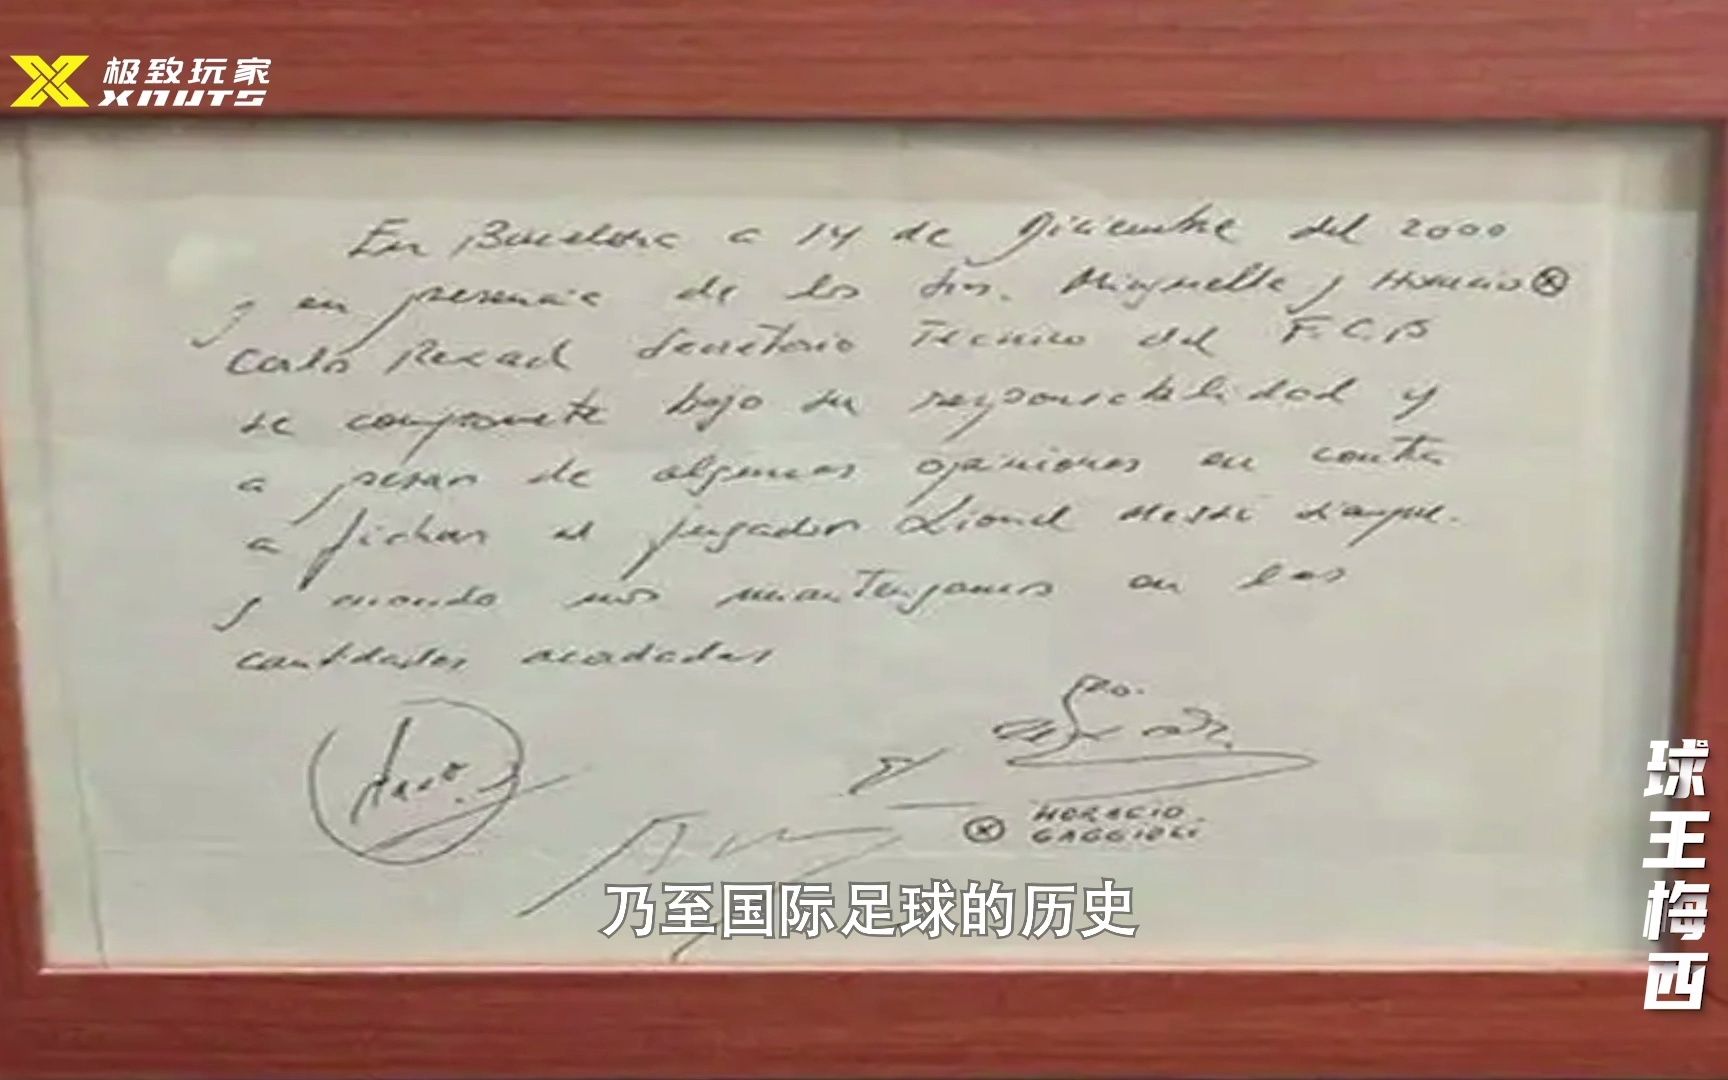 极致玩家
XNUTS
En Barcelona a 14 de Diciembre del 2000
y en presencia de los Srs. Minguella y Horacio ⊗
Carlos Rexach Secretario Tecnico del F.C.B
se compromete bajo su responsabilidad y
a pesar de algunas opiniones en contra
a fichar al jugador Lionel Messi siempre
y cuando nos mantengamos en las
cantidades acordadas
⊗ HORACIO
GAGGIOLI
乃至国际足球的历史
球王梅西